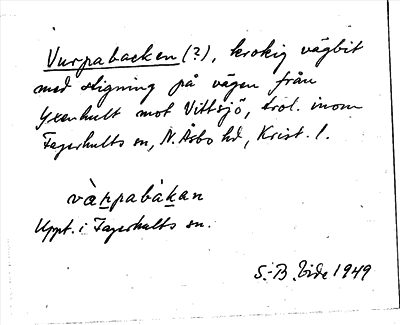 Vurpabacken (?), krokig vägbit
med stigning på vägen från
Yxenhult mot Vittsjö, trol. inom
Fagerhults sn, N. Åsbo hd, Krist. l.
vàrpabàkan
Uppt. i Fagerhults sn.
S.-B. Vide 1949